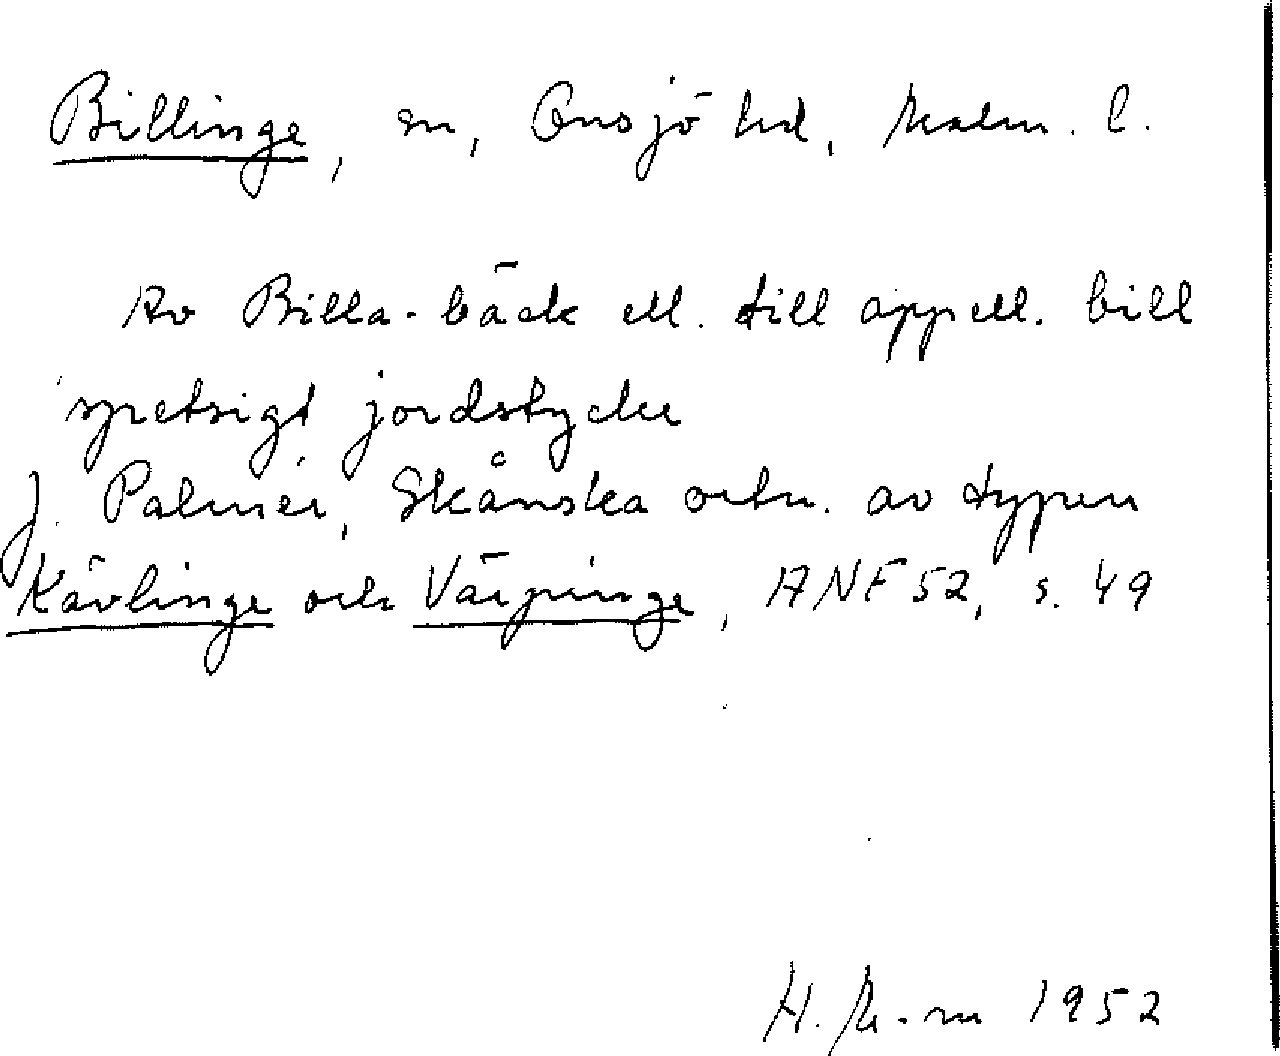 Billinge, sn, Onsjö hd, Malm. l.
Av Billa-bäck ell. till appell. bill
'spetsigt jordstycke'
J. Palmér, Skånska ortn. av typen
Kävlinge och Värpinge, ANF 52, s. 49
H. M-m 1952